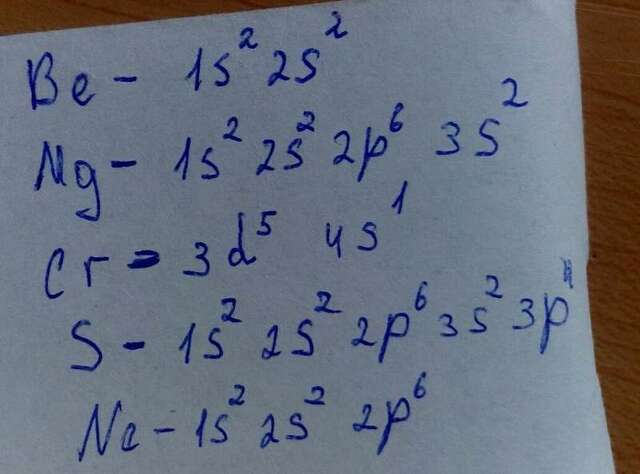 Be - 1s² 2s²
Mg - 1s² 2s² 2p⁶ 3s²
Cr - 3d⁵ 4s¹
S - 1s² 2s² 2p⁶ 3s² 3p
Ne - 1s² 2s² 2p⁶